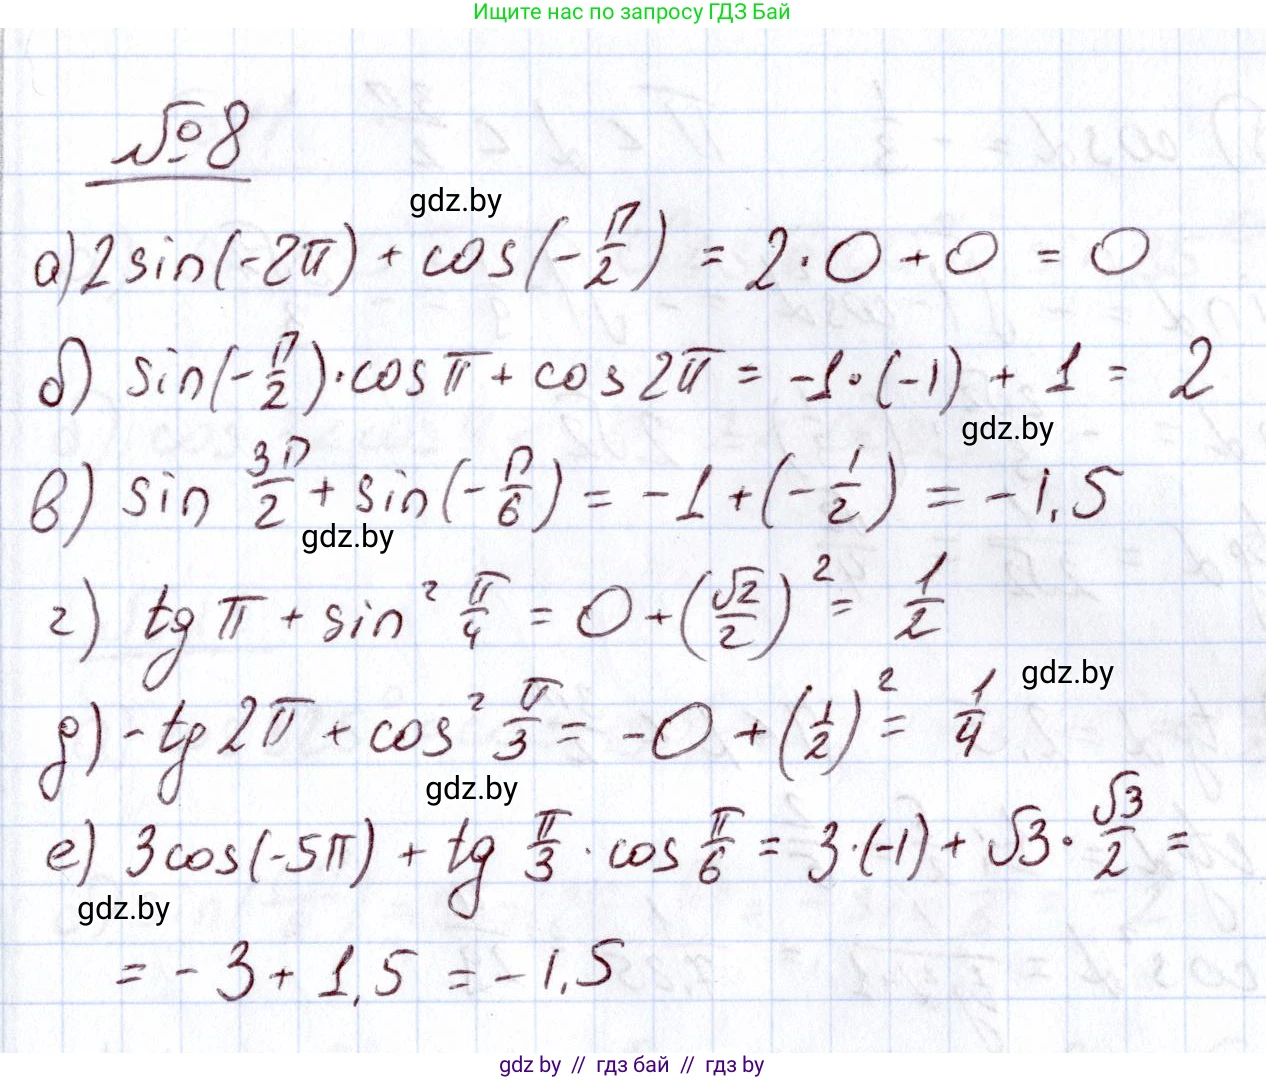 Ищите нас по запросу ГДЗ Бай
№8
gdz.by
а) 2 sin(-2π) + cos(-π/2) = 2·0 + 0 = 0
б) sin(-π/2)·cos π + cos 2π = -1·(-1) + 1 = 2
gdz.by
в) sin 3π/2 + sin(-π/6) = -1 + (-1/2) = -1,5
gdz.by
г) tg π + sin² π/4 = 0 + (√2/2)² = 1/2
gdz.by
д) -tg 2π + cos² π/3 = -0 + (1/2)² = 1/4
gdz.by
е) 3cos(-5π) + tg π/3 · cos π/6 = 3·(-1) + √3·√3/2 =
gdz.by
= -3 + 1,5 = -1,5
gdz.by // гдз бай // гдз by